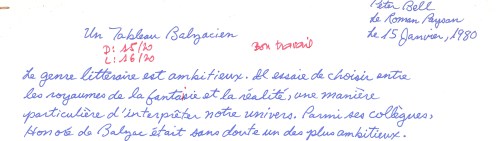 Peter Bell
Le Roman Paysan
Le 15 Janvier, 1980
Un Tableau Balzacien
D: 15/20
L: 16/20
Bon travail
Le genre littéraire est ambitieux. Il essaie de choisir entre
les royaumes de la fantaisie et la réalité, une manière
particulière d'interpréter notre univers. Parmi ses collègues,
Honoré de Balzac était sans doute un des plus ambitieux.